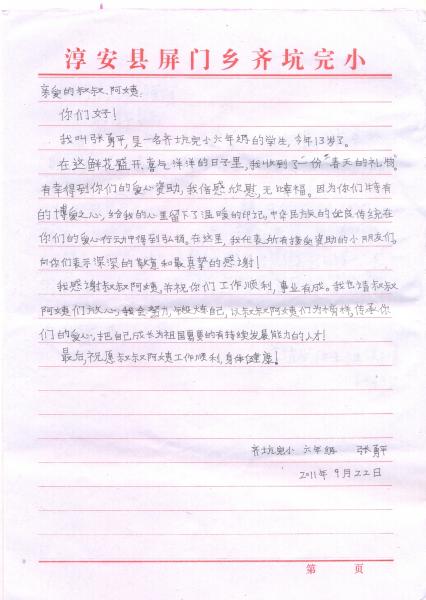 淳安县屏门乡齐坑完小
亲爱的叔叔、阿姨：
你们好！
我叫张勇平，是一名齐坑完小六年级的学生，今年13岁了。
在这鲜花盛开，喜气洋洋的日子里，我收到了一份"春天的礼物"
有幸得到你们的爱心资助，我倍感欣慰，无比幸福。因为你们拥有
的博爱之心，给我的心里留下了温暖的印记，中华民族的优良传统在
你们的爱心行动中得到弘扬。在这里，我代表所有接受资助的小朋友们，
向你们表示深深的敬意和最真挚的感谢！
我感谢叔叔阿姨，并祝你们工作顺利，事业有成。我也请叔叔
阿姨们放心，我会努力，锻炼自己，以叔叔阿姨们为榜样，传承你
们的爱心，把自己成长为祖国需要的有持续发展能力的人才！
最后，祝愿叔叔阿姨工作顺利，身体健康！
齐坑完小 六年级 张勇平
2011年9月22日
第 页